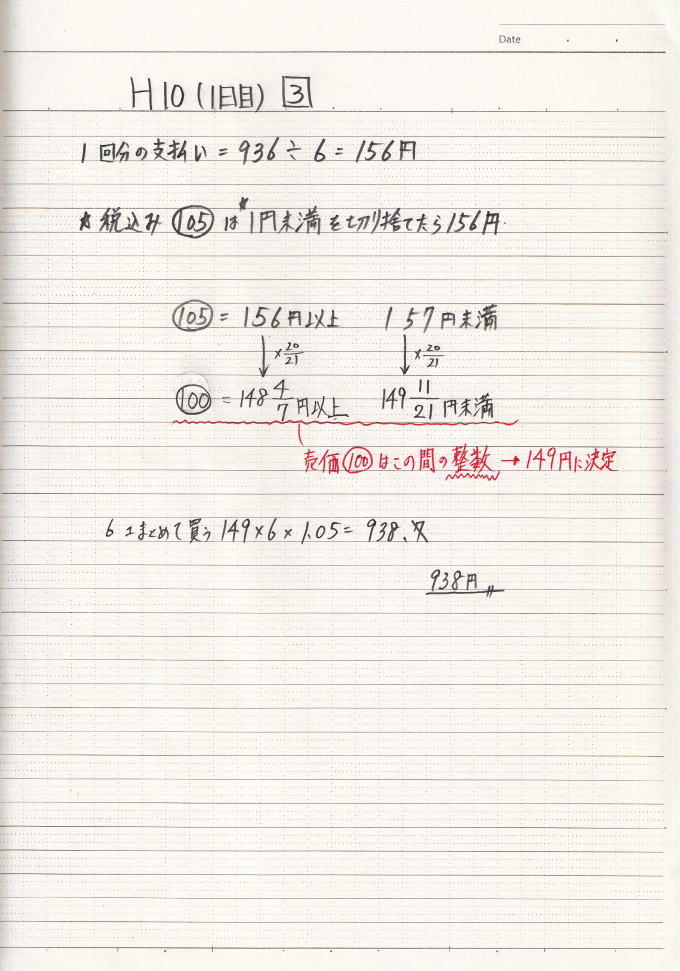 Date
H10(1日目) 3
1回分の支払い = 936 ÷ 6 = 156円
☆税込み 105 は 1円未満を切り捨てたら156円.
105 = 156円以上 157円未満
×20/21 ×20/21
100 = 148 4/7 円以上 149 11/21 円未満
売価100はこの間の整数 → 149円に決定
6コまとめて買う 149×6×1.05 = 938.7
938円